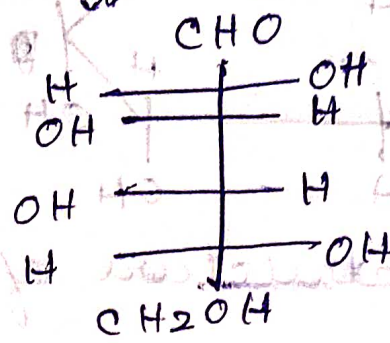 CHO
H OH
OH H
OH H
H OH
CH2OH